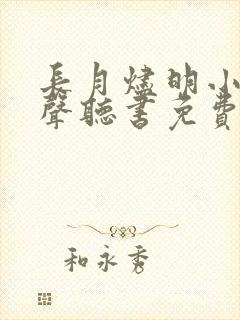 長月燼明小
聲聽書免費
和永秀